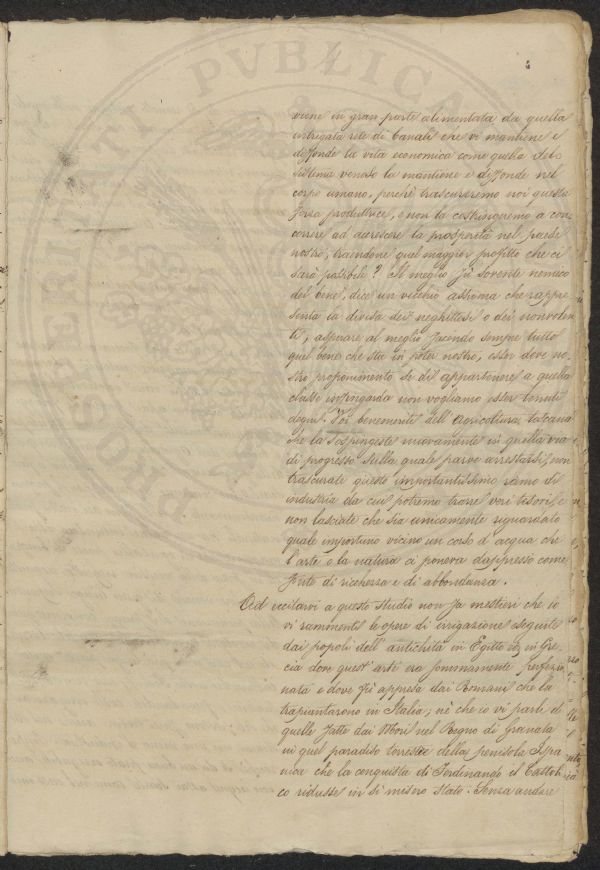 PROSPERITATI PVBLICAE
4
viene in gran parte alimentata da quella
intrigata rete di Canali che vi mantiene e
diffonde la vita economica come quella del
sistema venoso la mantiene e diffonde nel
corpo umano, perchè trascureremo noi questa
forza produttrice, e non la costringeremo a con
correre ad accrescere la prosperità nel paese
nostro, traendone quel maggior profitto che ci
sarà possibile? Il meglio fù sovente nemico
del bene, dice un vecchio assioma che rappre
senta la divisa dei neghittosi o dei nonvolen
ti; aspirare al meglio facendo sempre tutto
quel bene che sta in poter nostro, esser deve no
stro proponimento se di appartenere a quella
classe infingarda non vogliamo esser tenuti
degni. Voi benemeriti dell'Agricoltura toscana
che la sospingeste nuovamente in quella via
di progresso sulla quale parve arrestarsi, non
trascurate questo importantissimo ramo di
industria da cui potremo trarre veri tesori, e
non lasciate che sia unicamente riguardato
quale importuno vicino un corso d'acqua che
l'arte o la natura ci poneva dappresso come
fonte di ricchezza e di abbondanza.
Ad eccitarvi a questo studio non fa mestieri che io
vi rammenti le opere di irrigazione eseguite
dai popoli dell'antichità in Egitto ed in Gre
cia dove quest'arti era sommamente perfezio
nata e dove fù appresa dai Romani che la
trapiantarono in Italia; nè che io vi parli di
quelle fatte dai Mori nel Regno di Granata
in quel paradiso terrestre della penisola Ispa
nica che la conquista di Ferdinando il Cattoli
co ridusse in sì misero stato. Senza andare